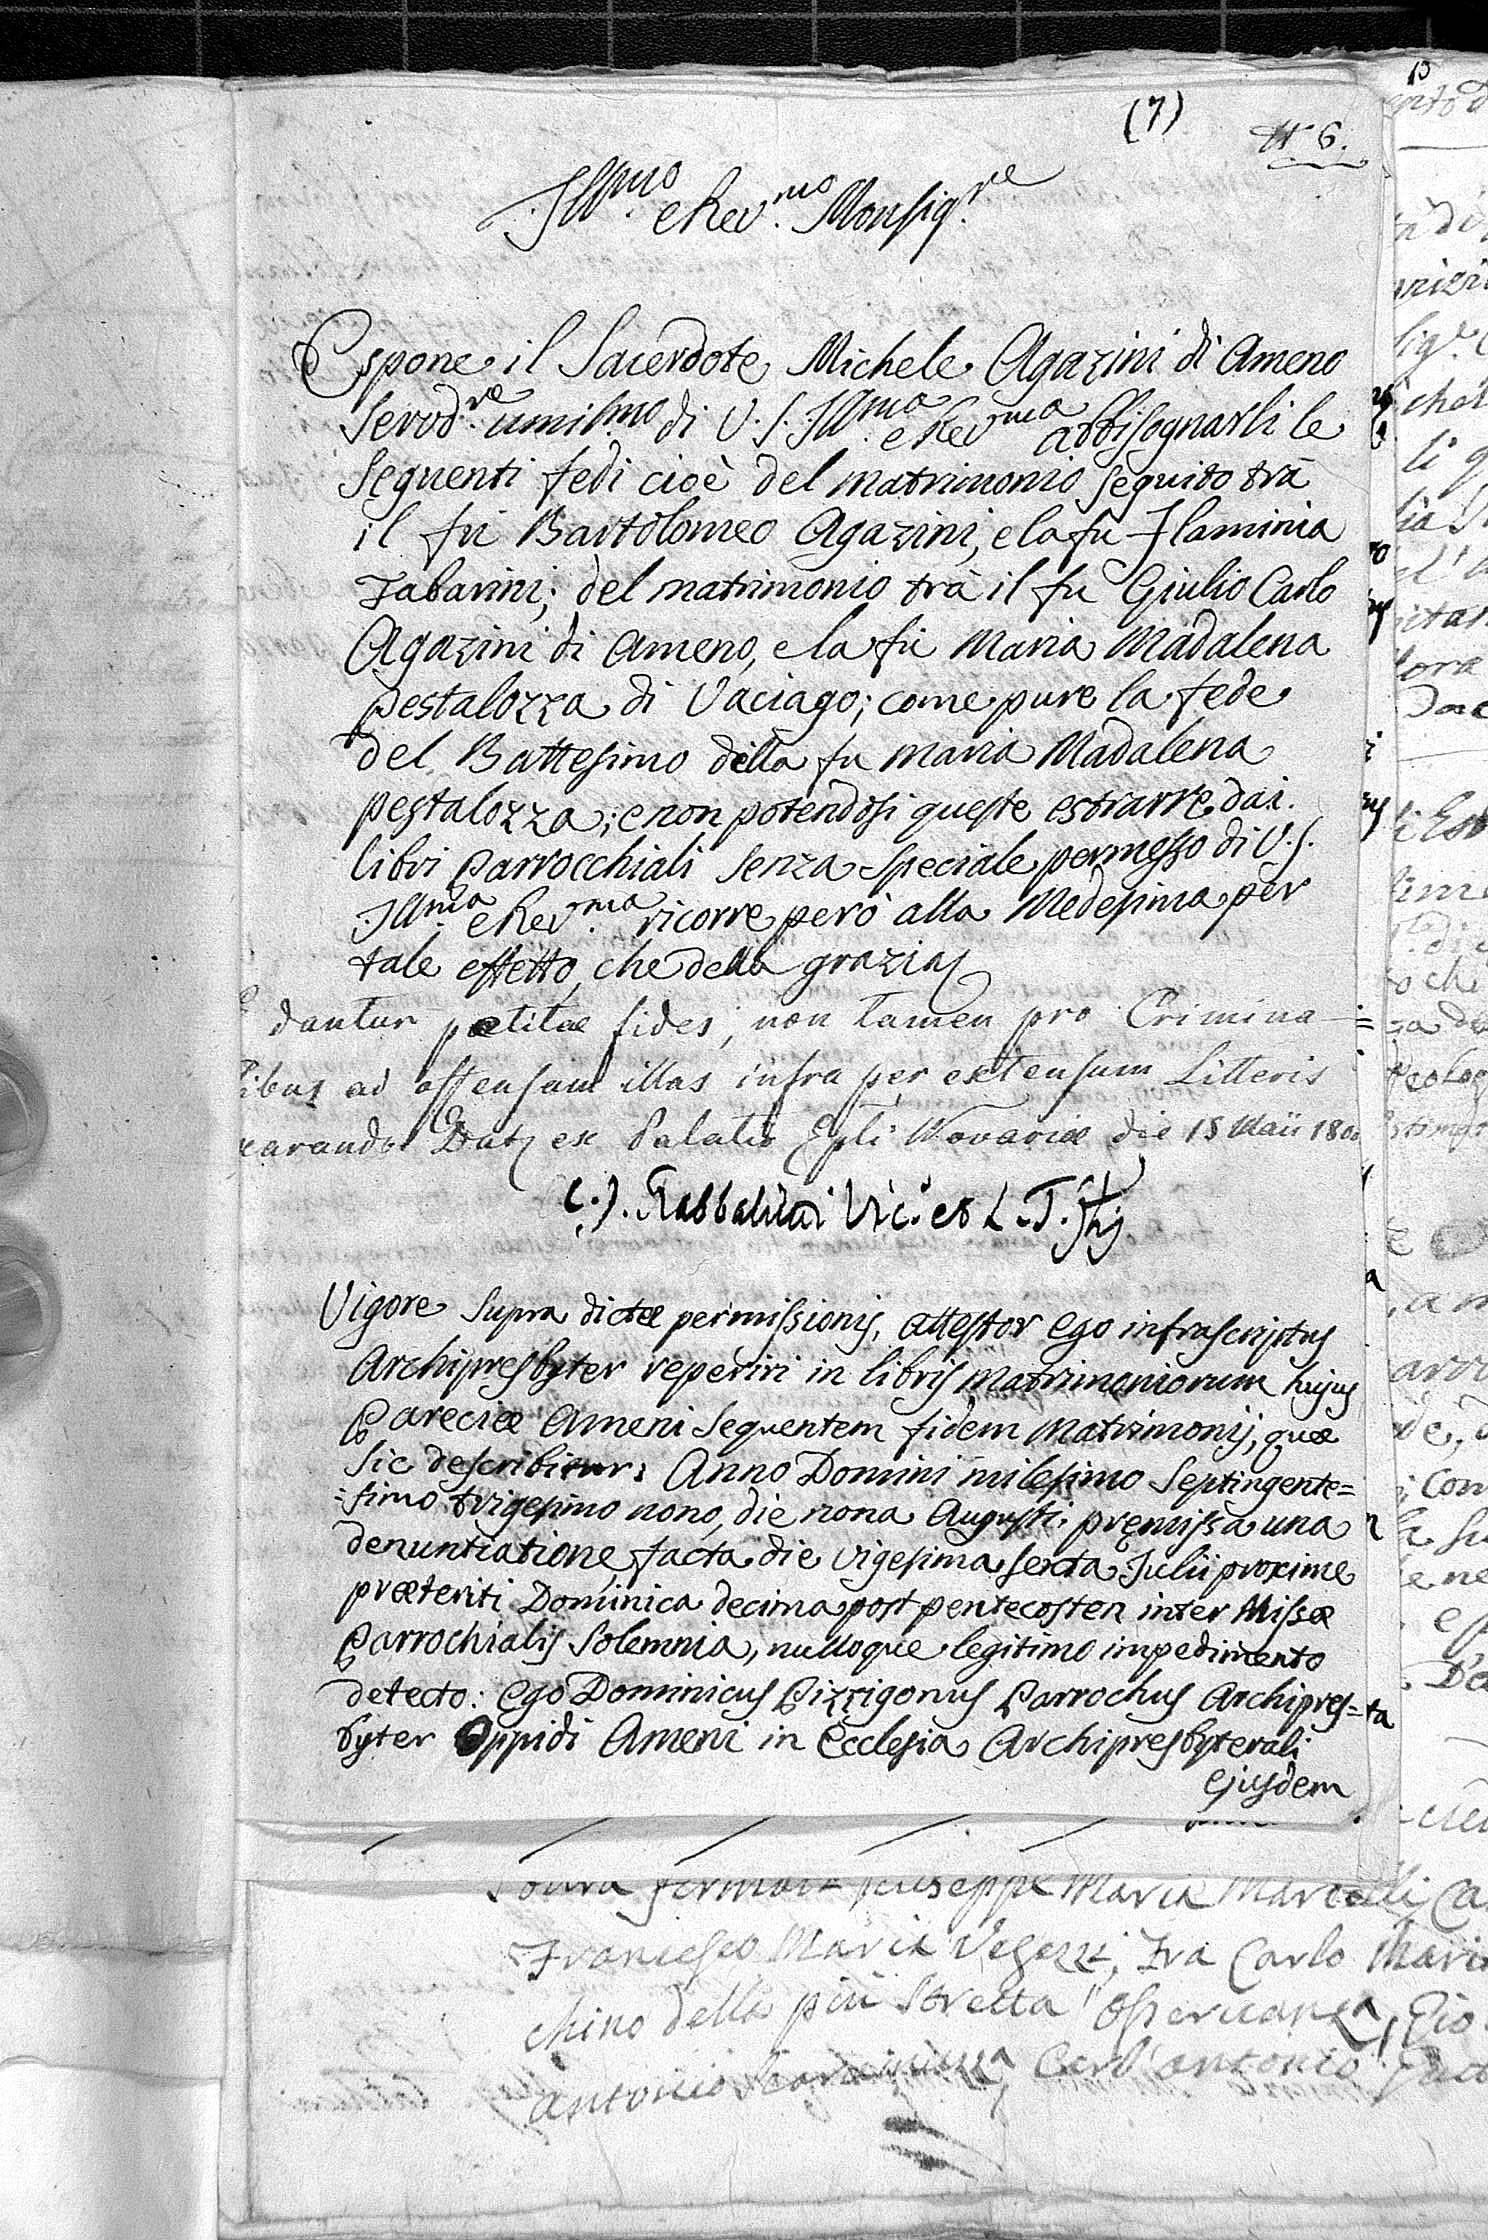 (7)
N° 6.
Ill.mo e Rev.mo Monsig.re
Espone il Sacerdote Michele Agazini di Ameno
Servid.re umilmo di V. S. Ill.ma e Rev.ma abbisognarli le
seguenti fedi cioè del matrimonio seguito trà
il fù Bartolomeo Agazini, e la fù Flaminia
Tabarini; del matrimonio trà il fù Giulio Carlo
Agazini di Ameno, e la fù Maria Madalena
Pestalozza di Vaciago; come pure la fede
del Battesimo della fu Maria Madalena
Pestalozza; e non potendosi queste estrarre dai
libri Parrocchiali senza speciale permesso di V. S.
Ill.ma e Rev.ma ricorre però alla Medesima per
tale effetto, che della grazia
dantur petitæ fides, non tamen pro Crimina
libus ad offensam illas infra per extensum Litteris
exarando Dat ex Palatio Epli Novariæ die 15 Maii 180
Vic.s et L. T.
Vigore supra dictæ permissionis, attestor ego infrascriptus
Archipresbyter reperiri in libris Matrimoniorum hujus
Pareciæ Ameni sequentem fidem Matrimonij, quæ
sic describitur: Anno Domini milesimo septingente=
=simo trigesimo nono, die nona Augusti, pręmissa una
denuntiatione, facta die vigesima sexta Julii proxime
præteriti Dominica decima post pentecosten inter Missæ
Parrochialis solemnia, nulloque legitimo impedimento
detecto: Ego Dominicus Pizzigonus Parrochus Archipres=
byter Oppidi Ameni in Ecclesia Archipresbyterali
ejusdem
Giuseppe Maria Martelli, Ca
Francesco Maria Vegezzi, Fra Carlo Mari
chino della più stretta Osservanza, Gio
Antonio Carl'antonio